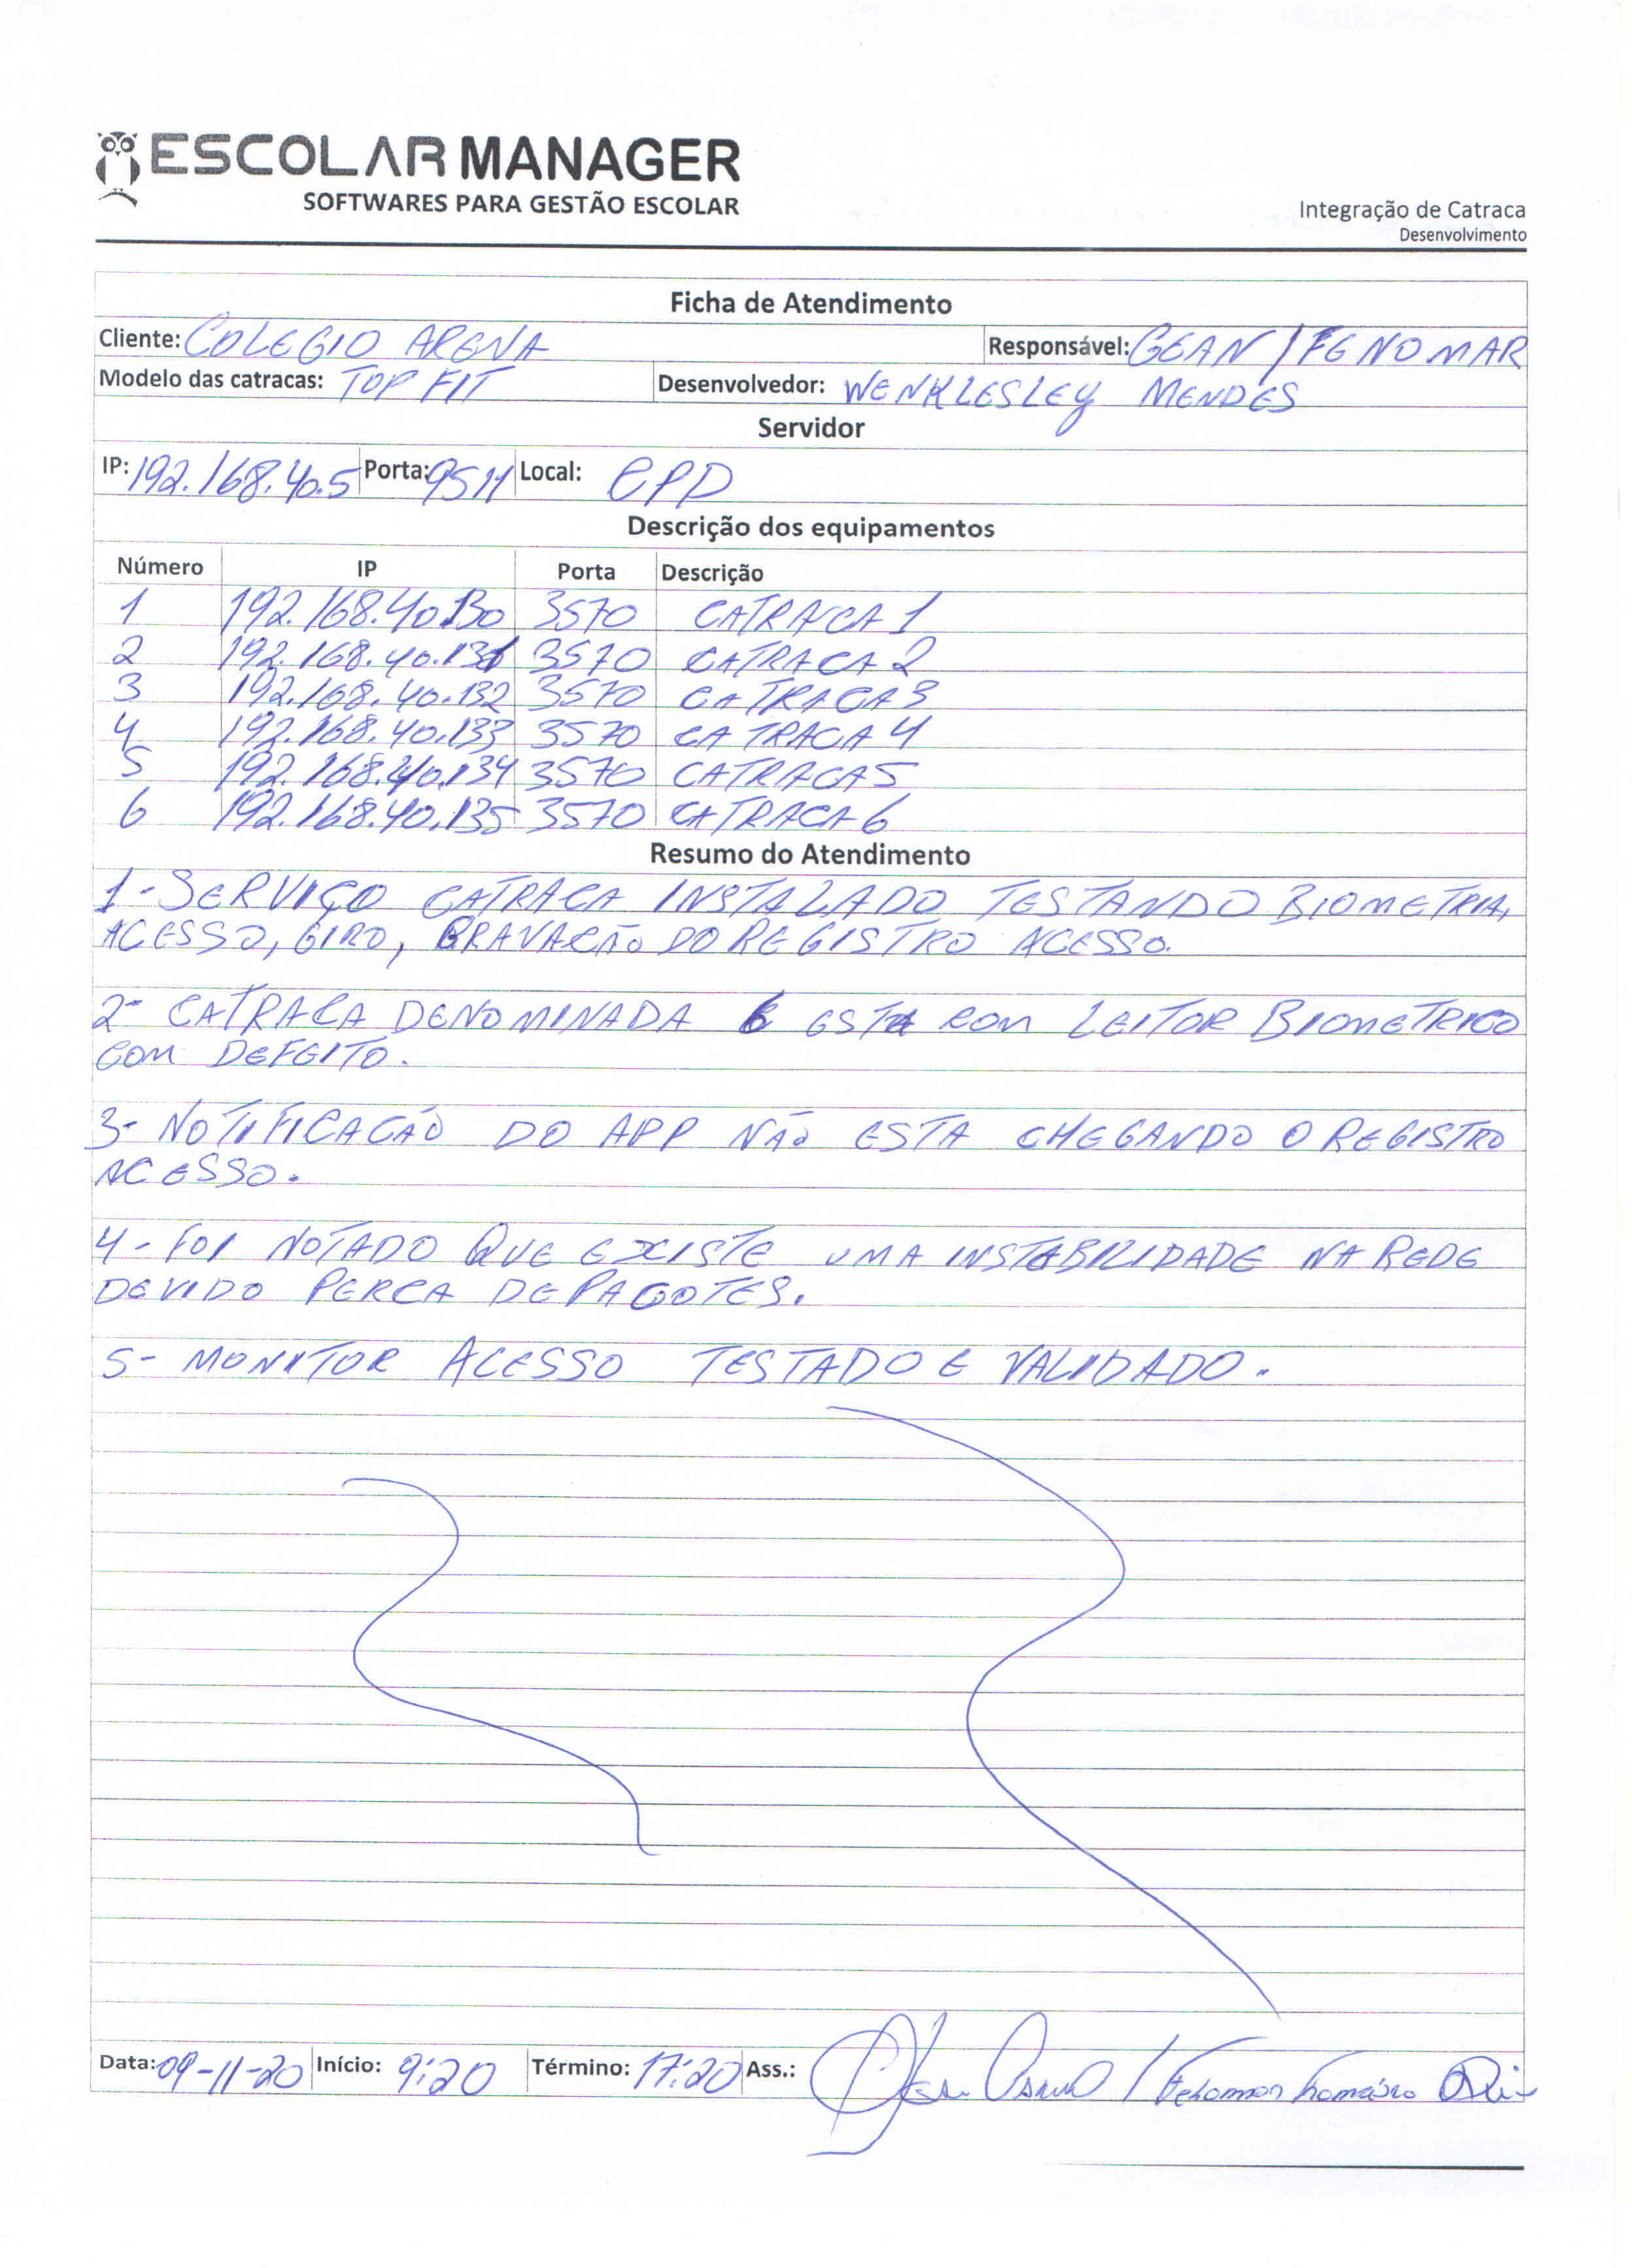 ESCOLAR MANAGER
SOFTWARES PARA GESTÃO ESCOLAR
Integração de Catraca
Desenvolvimento
Ficha de Atendimento
Cliente: COLEGIO ARENA Responsável: GEAN / FENOMAR
Modelo das catracas: TOP FIT Desenvolvedor: WENKLESLEY MENDES
Servidor
IP: 192.168.40.5 Porta: 9511 Local: CPD
Descrição dos equipamentos
Número IP Porta Descrição
1 192.168.40.130 3570 CATRACA 1
2 192.168.40.131 3570 CATRACA 2
3 192.168.40.132 3570 CATRACA 3
4 192.168.40.133 3570 CATRACA 4
5 192.168.40.134 3570 CATRACA 5
6 192.168.40.135 3570 CATRACA 6
Resumo do Atendimento
1- SERVIÇO CATRACA INSTALADO TESTANDO BIOMETRIA,
ACESSO, GIRO, GRAVAÇÃO DO REGISTRO ACESSO.
2- CATRACA DENOMINADA 6 ESTA COM LEITOR BIOMETRICO
COM DEFEITO.
3- NOTIFICACÃO DO APP NÃO ESTA CHEGANDO O REGISTRO
ACESSO.
4- FOI NOTADO QUE EXISTE UMA INSTABILIDADE NA REDE
DEVIDO PERCA DE PACOTES.
5- MONITOR ACESSO TESTADO E VALIDADO.
Data: 09-11-20 Início: 9:20 Término: 17:20 Ass.: